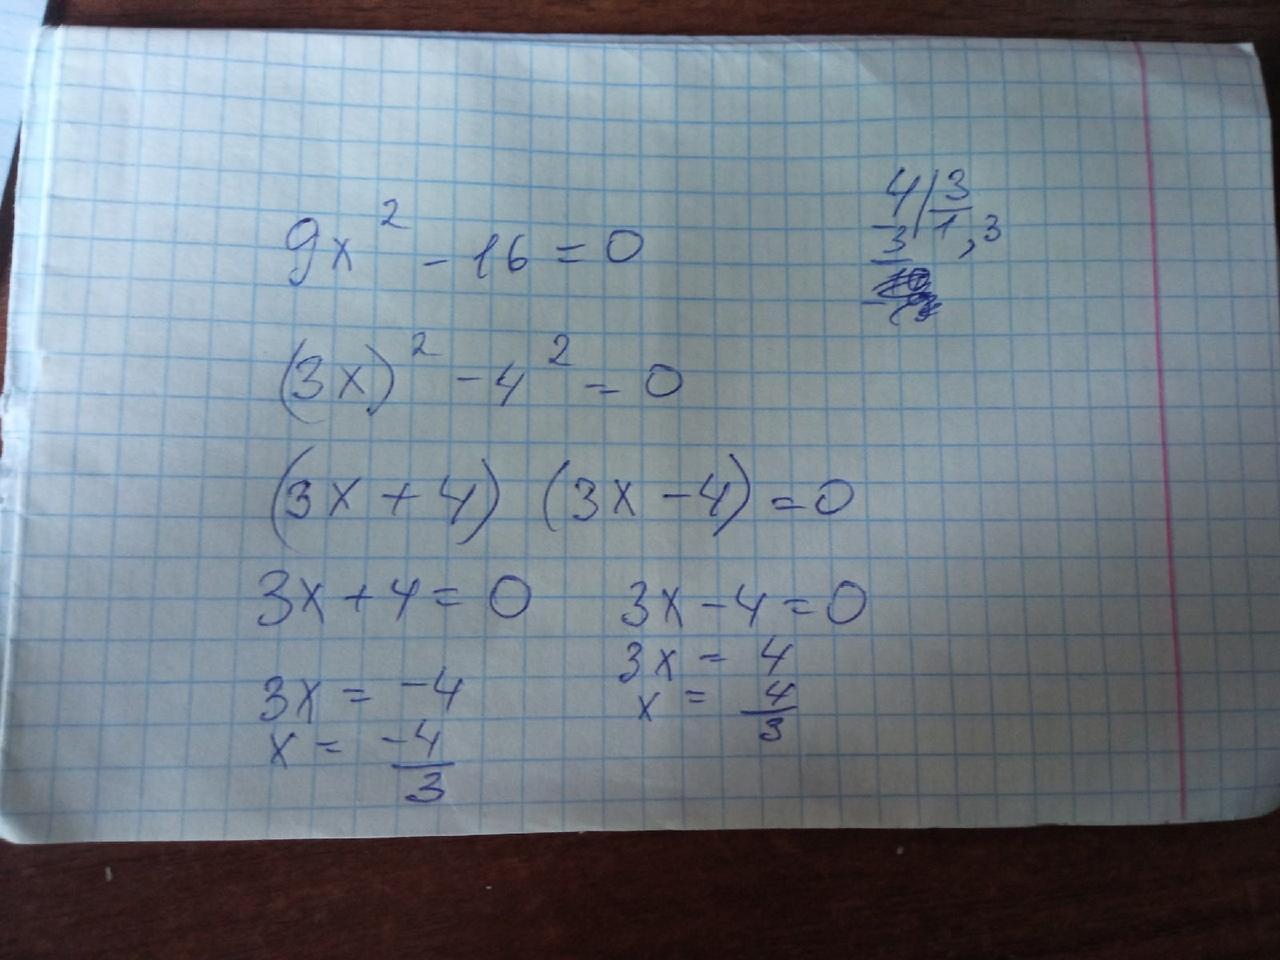 9x² - 16 = 0
(3x)² - 4² = 0
(3x + 4) (3x - 4) = 0
3x + 4 = 0
3x = -4
x = -4/3
3x - 4 = 0
3x = 4
x = 4/3
4 | 3
3 1,3